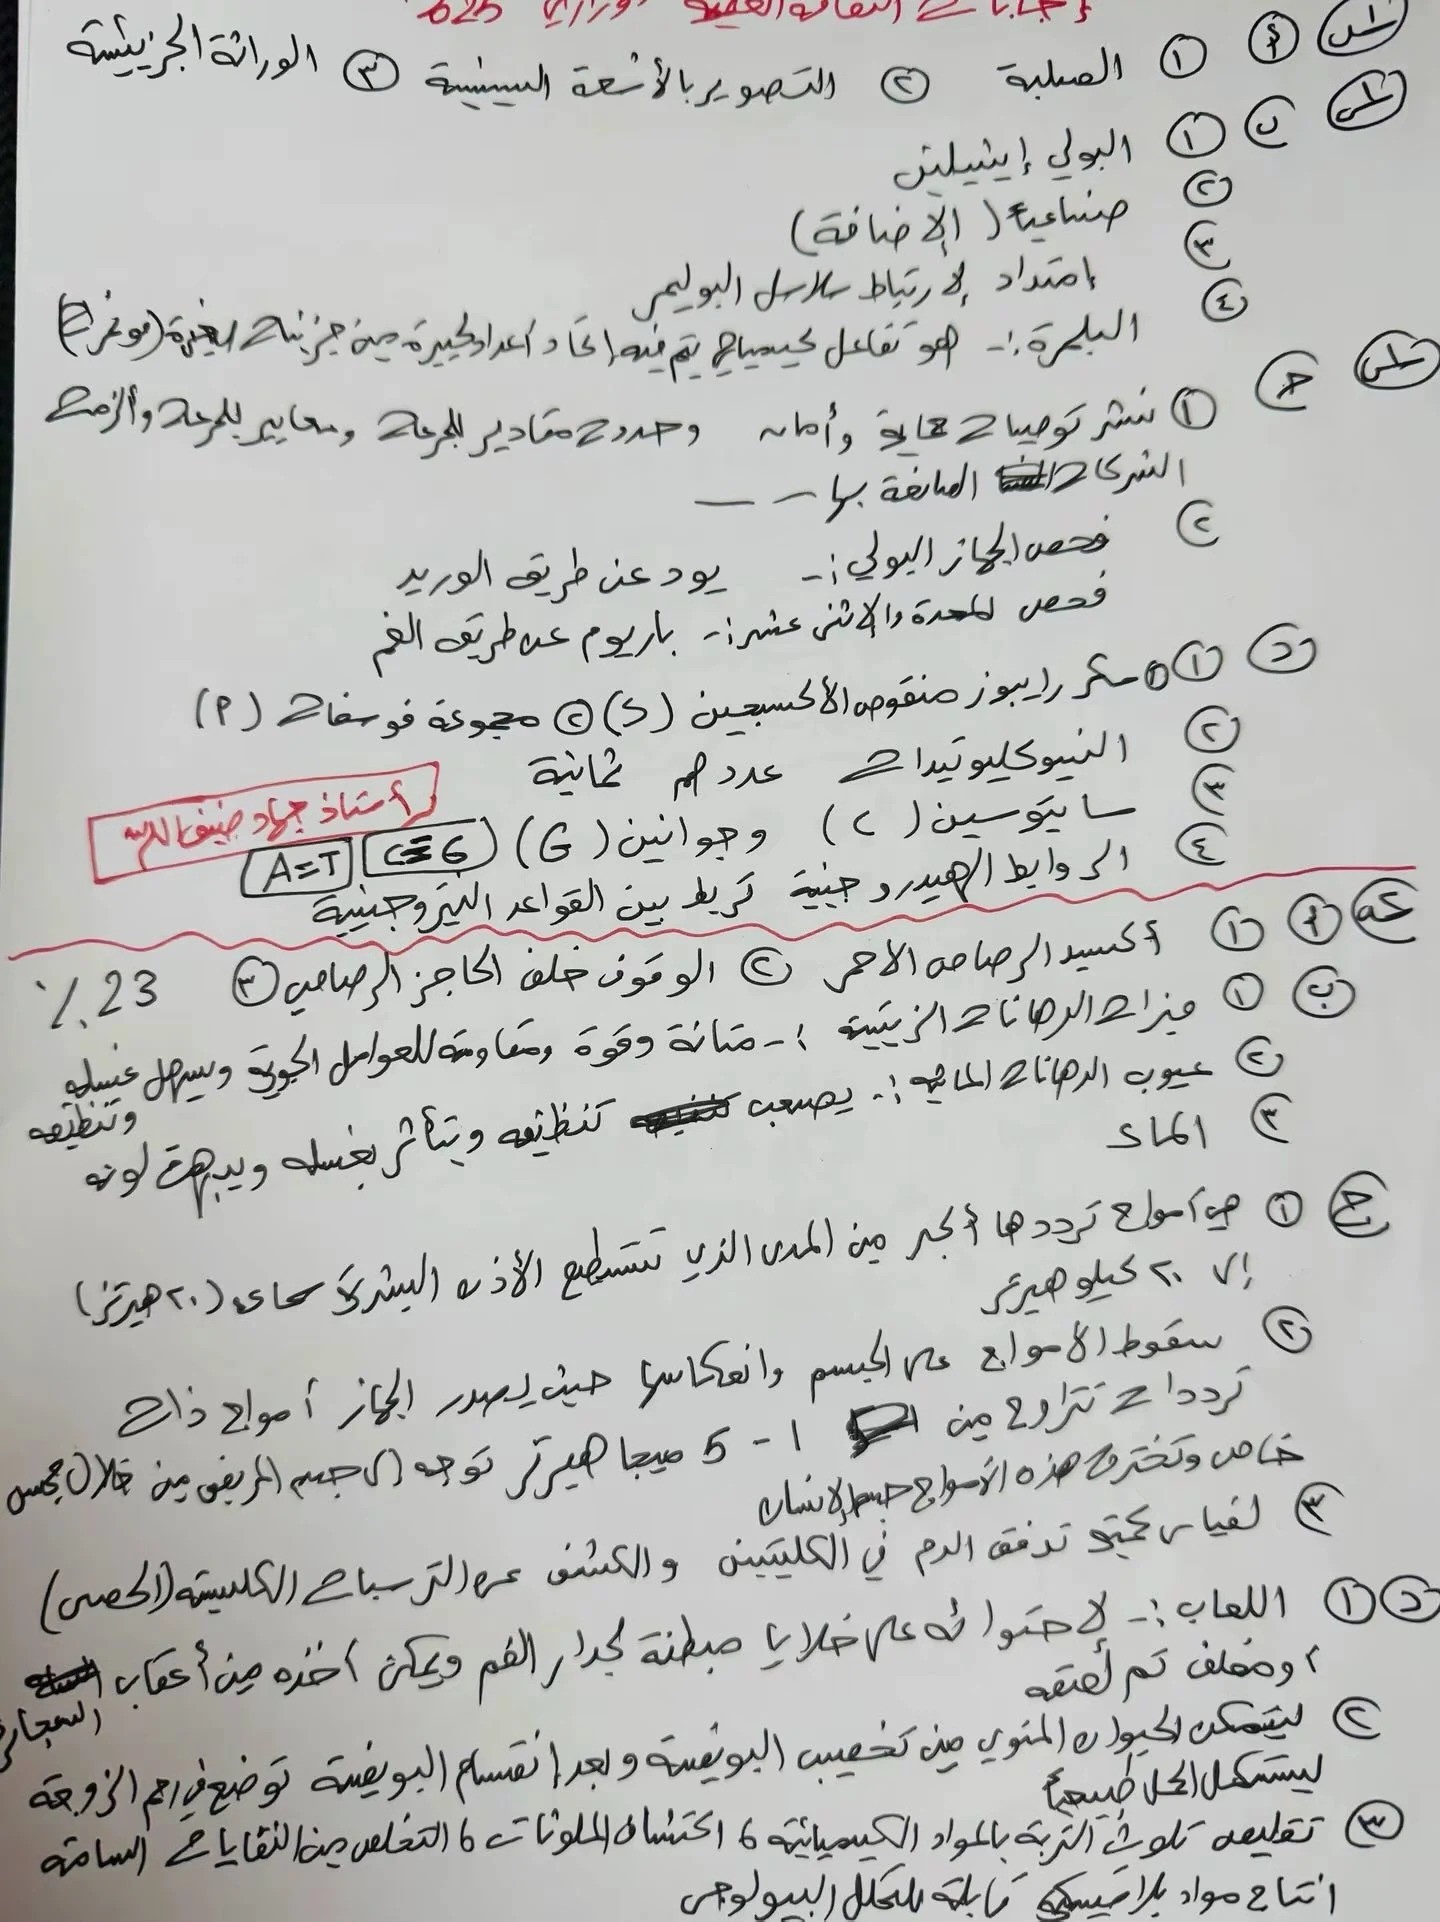 إجابات الثقافة العلمية وزاري 2025
س١ أ ① الصلبة ② التصوير بالأشعة السينية ③ الوراثة الجزيئية
س١ ب ① البولي إيثيلين
② صناعية (الإضافة)
③ امتداد لارتباط سلاسل البوليمر
④ البلمرة :- هو تفاعل كيميائي يتم فيه إتحاد أعداد كبيرة من جزيئات صغيرة (مونمرات)
س١ ج ① نشر توصيات حماية وأمان وحدود مقادير للجرعات ومعايير للجرعات وألزمت
الشركات الصانعة بها — —
② فحص الجهاز البولي :- يود عن طريق الوريد
فحص المعدة والاثنى عشر :- باريوم عن طريق الفم
د ① ① سكر رايبوز منقوص الأكسجين (S) ② مجموعة فوسفات (P)
② النيوكليوتيدات عددهم ثمانية
③ سايتوسين (C) وجوانين (G) C≡G A=T
أستاذ جهاد ضيف الله
④ الروابط الهيدروجينية تربط بين القواعد النيتروجينية
أ ① أكسيد الرصاص الأحمر ② الوقوف خلف الحاجز الرصاصي ③ 23 %
ب ① ميزات الدهانات الزيتية :- متانة وقوة ومقاومة للعوامل الجوية ويسهل غسله
وتنظيفه
② عيوب الدهانات المائية :- يصعب تنظيفه ويتأثر بغسله ويبهت لونه
③ الماء
ج ① هي أمواج ترددها أكبر من المدى الذي تستطيع الأذن البشرية سماعه (٢٠ هيرتز)
إلى ٢٠ كيلو هيرتز
② سقوط الأمواج على الجسم وانعكاسها حيث يصدر الجهاز أمواج ذات
ترددات تتراوح من 1 - 5 ميجا هيرتز توجه إلى جسم المريض من خلال مجس
خاص وتخترق هذه الأمواج جسم الإنسان
③ لقياس كمية تدفق الدم في الكليتين والكشف عن الترسبات الكلسية (الحصى)
د ① اللعاب :- لاحتوائه على خلايا مبطنة لجدار الفم ويمكن أخذه من أعقاب
السجائر
أو مغلف تم لصقه
② ليتمكن الحيوان المنوي من تخصيب البويضة وبعد إنقسام البويضة توضع في رحم الزوجة
ليستكمل الحمل طبيعياً
③ تقليص تلوث التربة بالمواد الكيميائية ، اكتشاف الملوثات ، التخلص من النفايات السامة
انتاج مواد بلاستيكية قابلة للتحلل البيولوجي